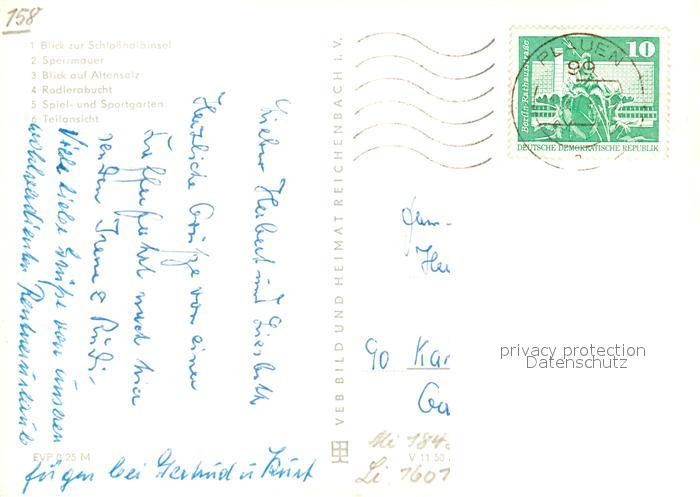 158
1 Blick zur Schloßhalbinsel
2 Sperrmauer
3 Blick auf Altensalz
4 Radlerabucht
5 Spiel- und Sportgarten
6 Teilansicht
Lieber Herbert und Liesbeth
Herzliche Grüße von einer
Kaffeefahrt nach hier
senden Irene & Rudi.
Viele liebe Grüße von unseren
wohlverdienten Rentnerurlaub
fügen bei Gertrud u Kurt
EVP 0,25 M
VEB BILD UND HEIMAT REICHENBACH I. V.
V 11 50
PLAUEN
99
10
Berlin-Rathausstraße
DEUTSCHE DEMOKRATISCHE REPUBLIK
Fam-
Her
90 Kar
Ga
privacy protection
Datenschutz
Mi 184
Li 1601